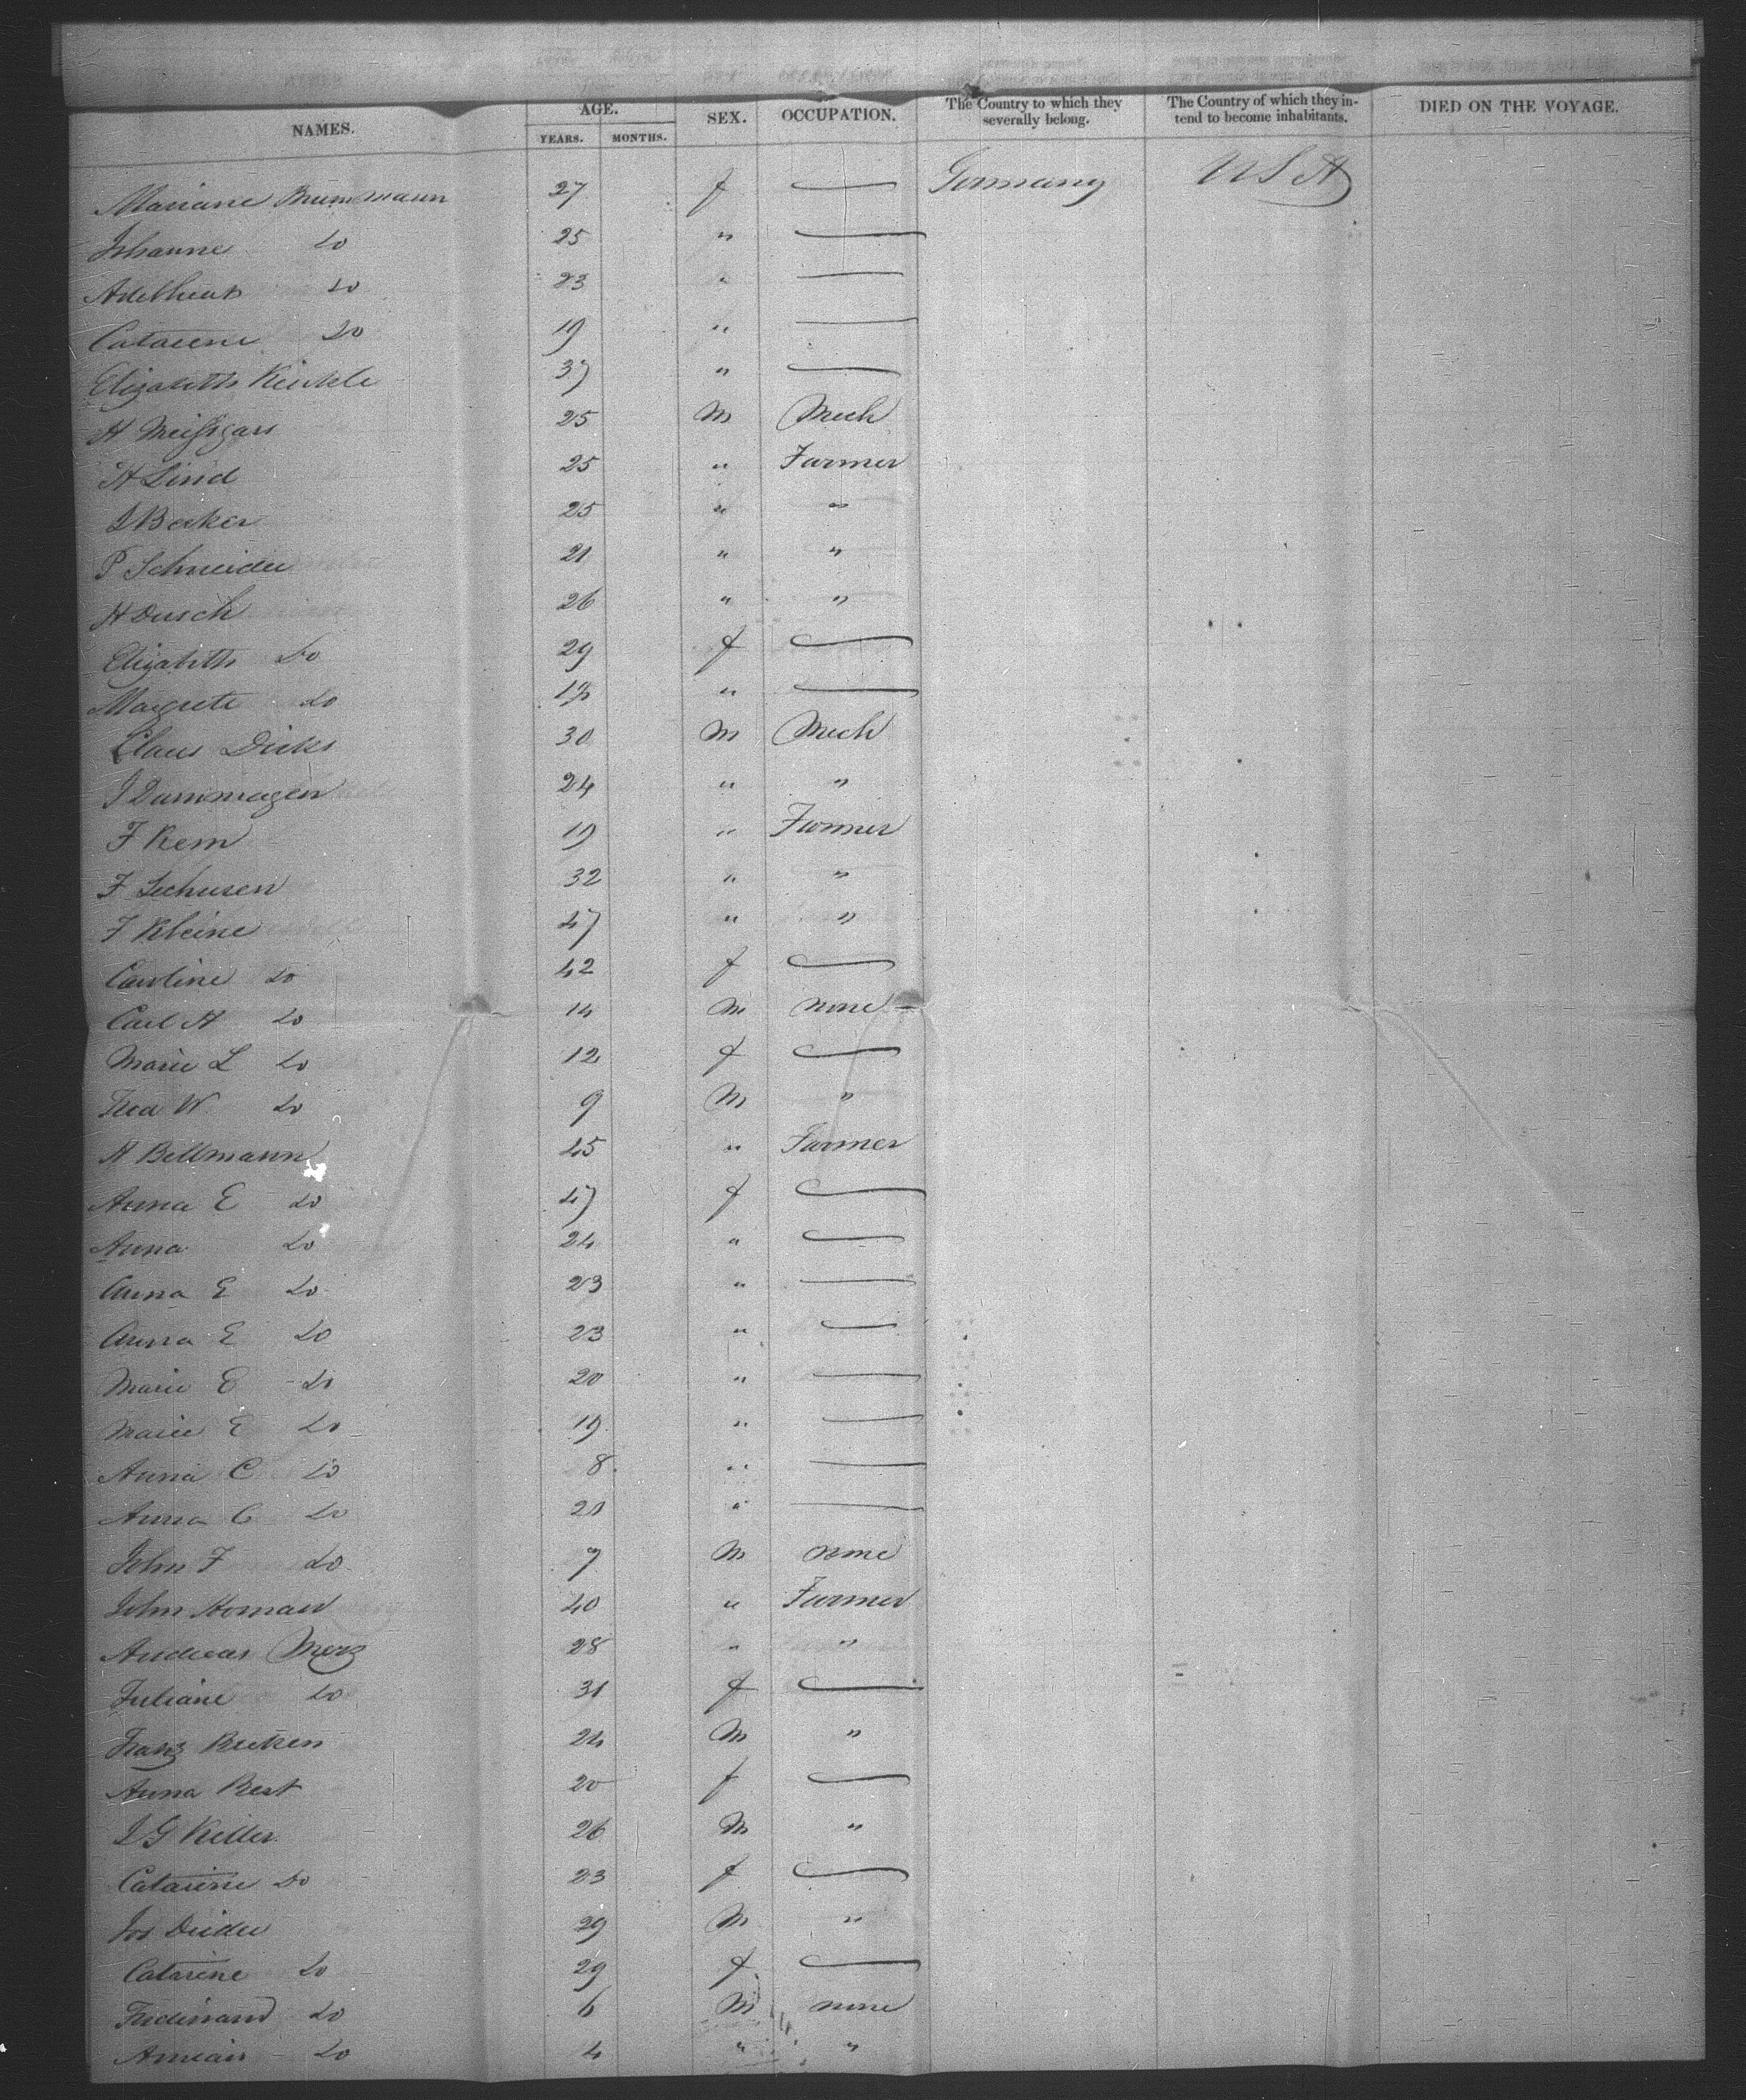 NAMES. AGE. YEARS. MONTHS. SEX. OCCUPATION. The Country to which they severally belong. The Country of which they intend to become inhabitants. DIED ON THE VOYAGE.
Mariane Brummann 27 f — Germany U S A
Johanne Do 25 " —
Adelheid Do 23 " —
Catarine Do 19 " —
Elizabeth 37 " —
H 25 M Mech
H Lind 25 " Farmer
J Becker 25 " "
P Schneider 21 " "
H Dusch 26 " "
Elizabeth Do 29 f —
Magrete Do " —
Claus Dicks 30 M Mech
J Dammagen 24 " "
F Kem 19 " Farmer
F 32 " "
F Kleine 47 " "
Caroline Do 42 f —
Carl A Do 14 M none —
Marie L Do 12 f —
Fred W Do 9 M "
A Bellmann 45 " Farmer
Anna E Do 47 f —
Anna Do 24 " —
Anna E Do 23 " —
Anna E Do 23 " —
Marie E Do 20 " —
Marie E Do 19 " —
Anna C Do 8 " —
Anna C Do 21 " —
John F Do 7 M none
John Homan 40 " Farmer
Andreas Merz 28 " "
Juliane Do 31 f —
Franz 24 M "
Anna Best 20 f —
J G Keller 26 M "
Catarine Do 23 f —
Jos 29 M "
Catarine Do 29 f —
Ferdinand Do 6 M none
Do 4 " "